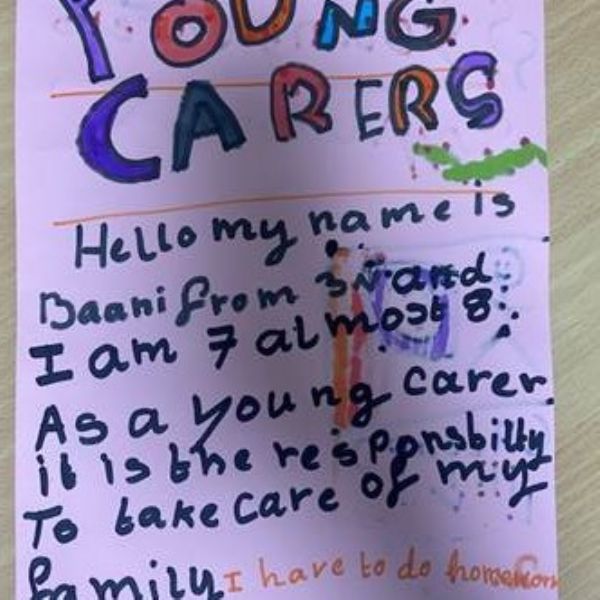 YOUNG
CARERS
Hello my name is
Baani from 3N and
I am 7 almost 8.
As a young carer
it is the responsbilty
To take care of my
family I have to do